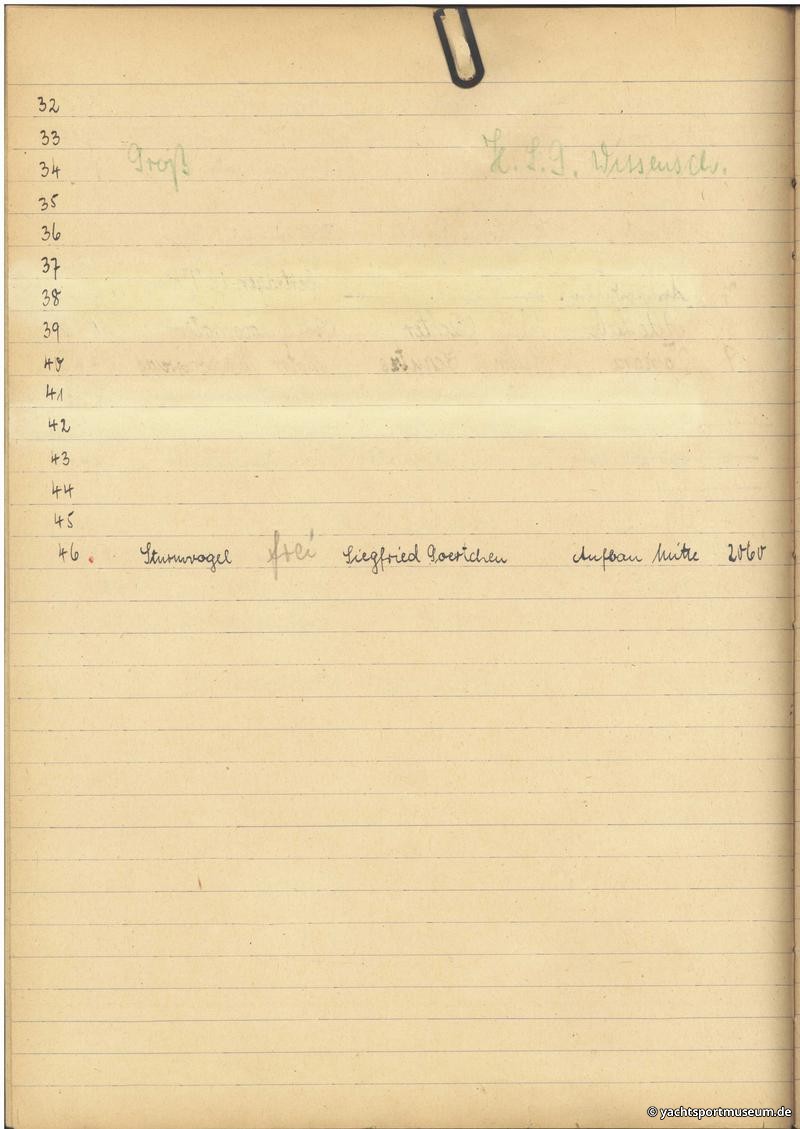 32
33
34 Groß H. S. G. Wissensch.
35
36
37
38
39
40
41
42
43
44
45
46. Sturmvogel frei Siegfried Goertchen Aufbau Mitte 2060
© yachtsportmuseum.de